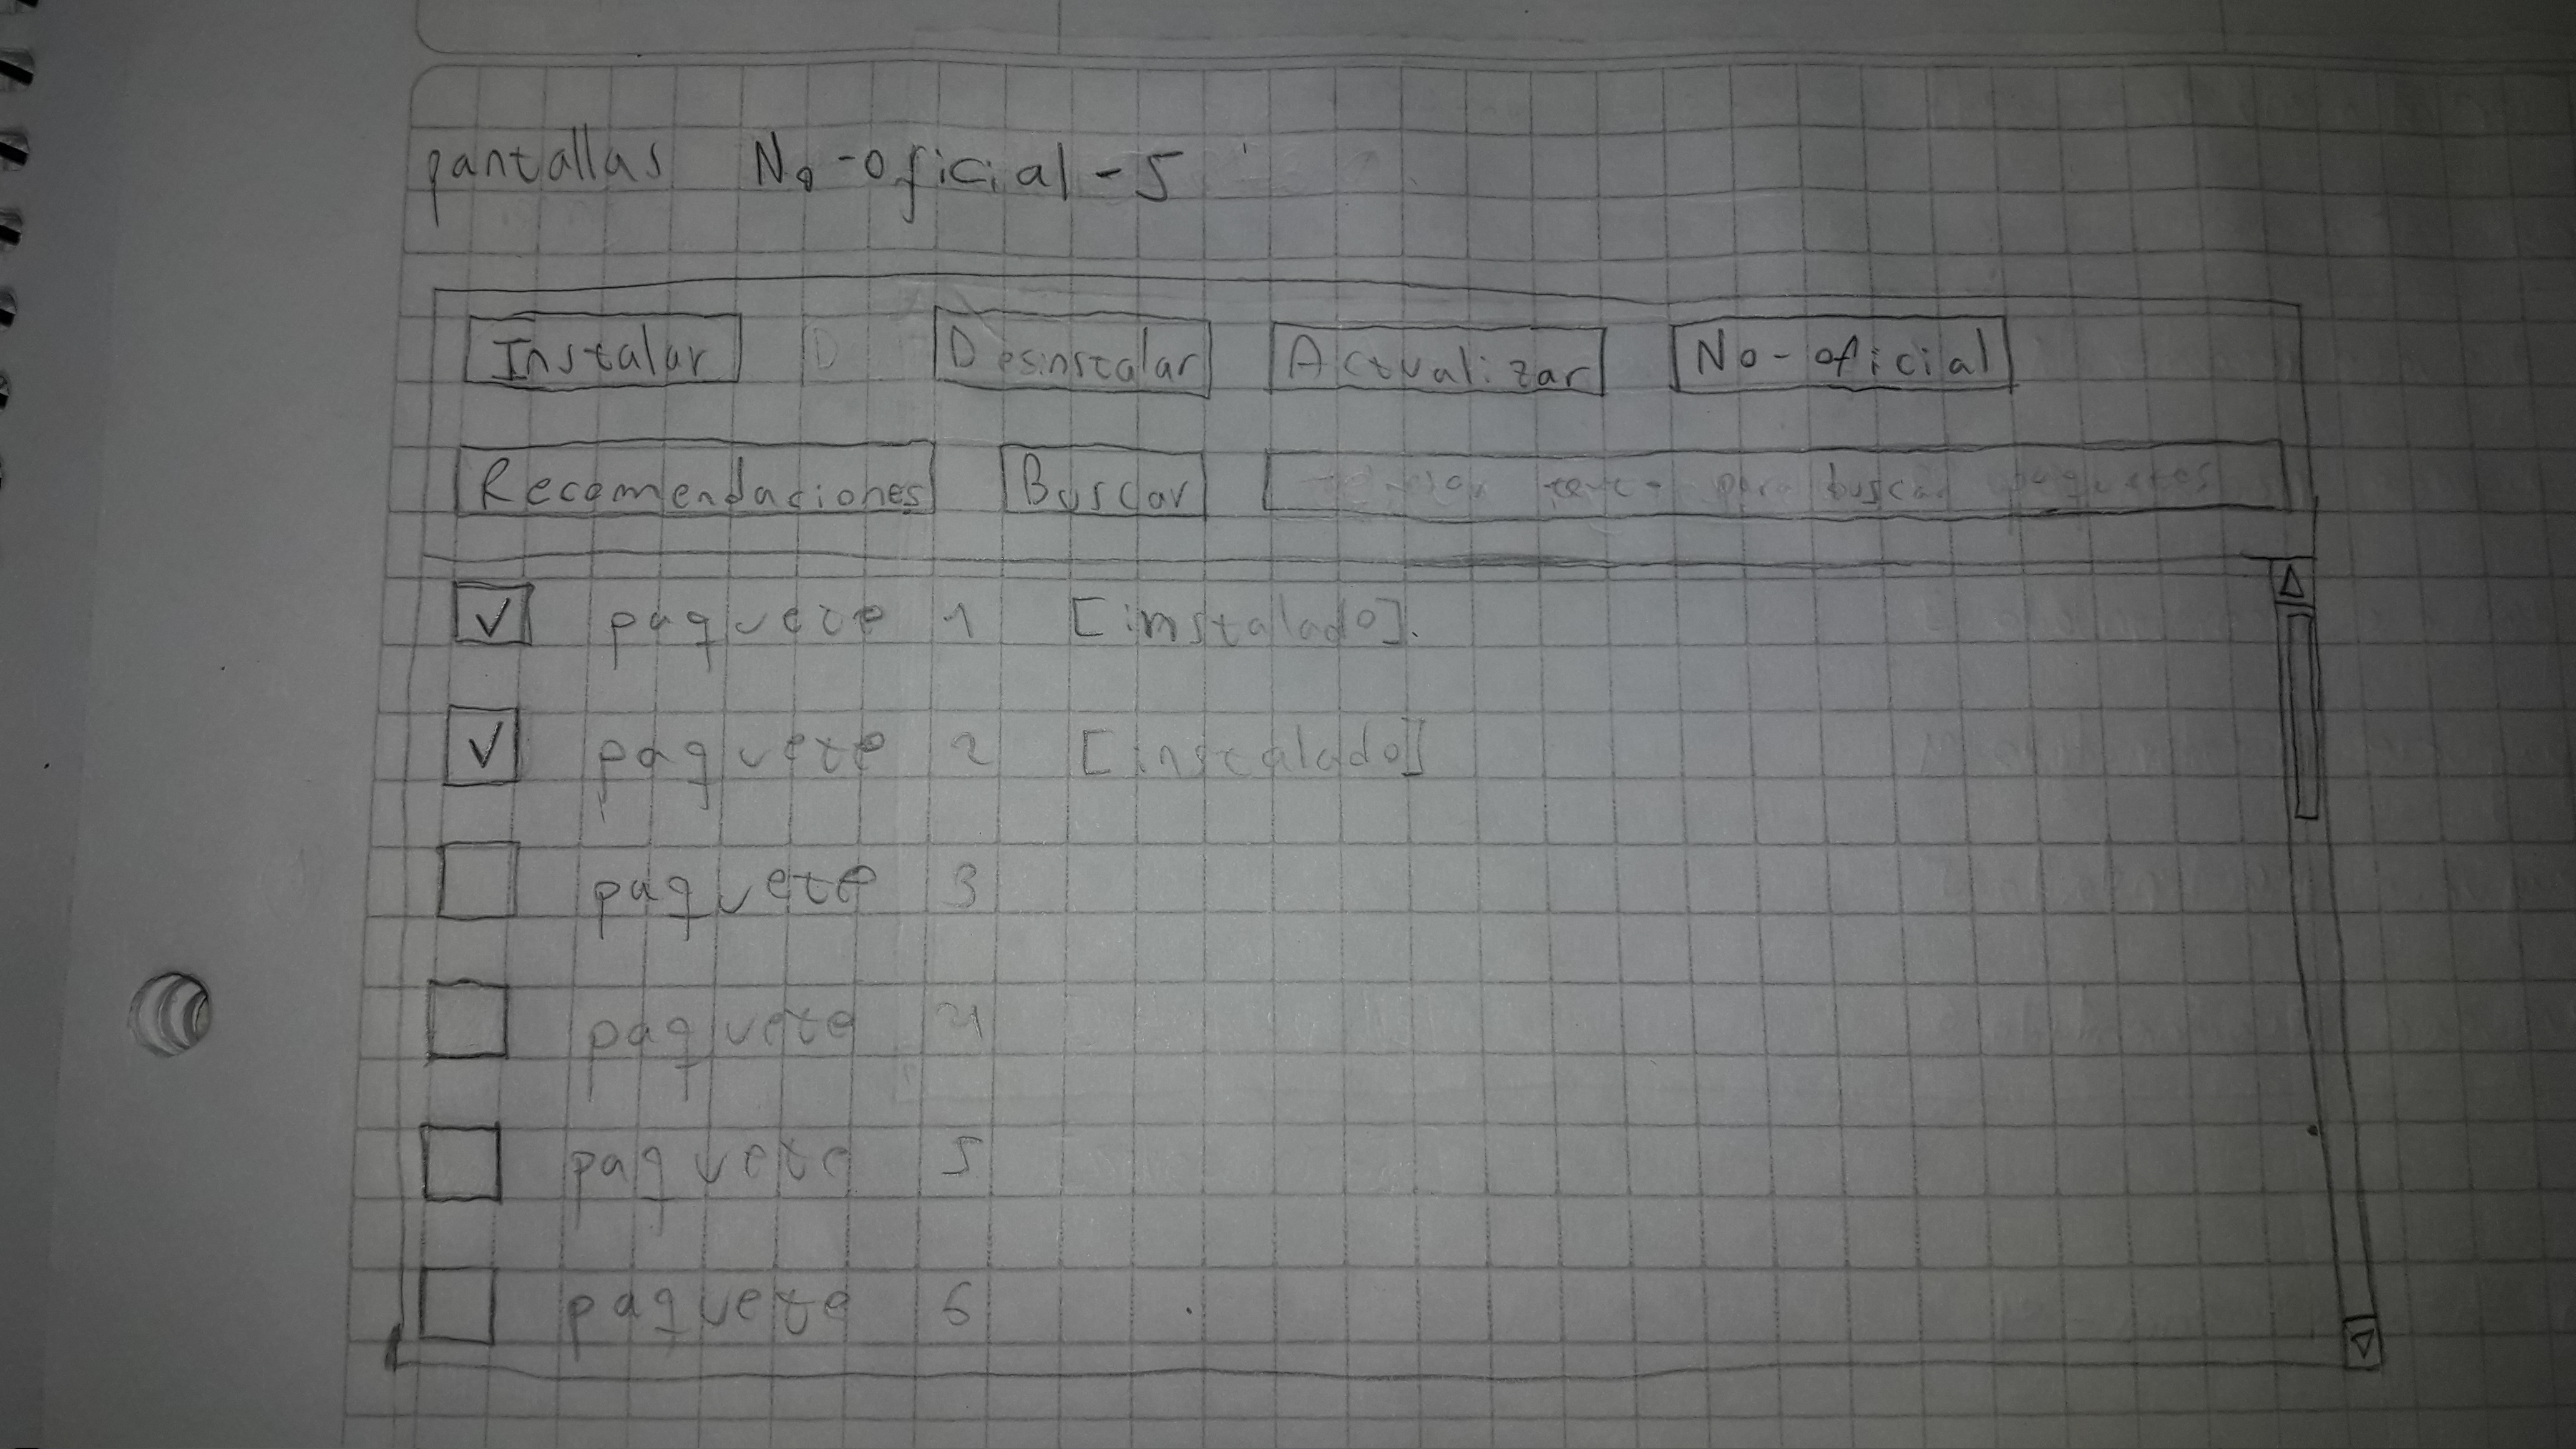 pantallas No-oficial-5
Instalar Desinstalar Actualizar No-oficial
Recomendaciones Buscar texto para buscar paquetes
paquete 1 [instalado].
paquete 2 [instalado]
paquete 3
paquete 4
paquete 5
paquete 6